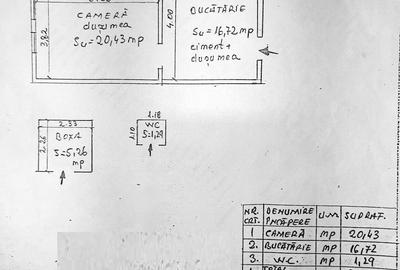 CAMERĂ
dușumea
Su=20,43 mp
3,82
4.00
BUCĂTĂRIE
Su=16,72 mp
ciment+
dușumea
2.33
2.26
BOXA
S=5,26
mp
1.18
1.10
WC
S=1,29
NR. CRT. DENUMIRE ÎNCĂPERE U.M SUPRAF.
1 CAMERĂ MP 20,43
2. BUCĂTĂRIE MP 16,72
3. W.C. MP 1,29
TOTAL